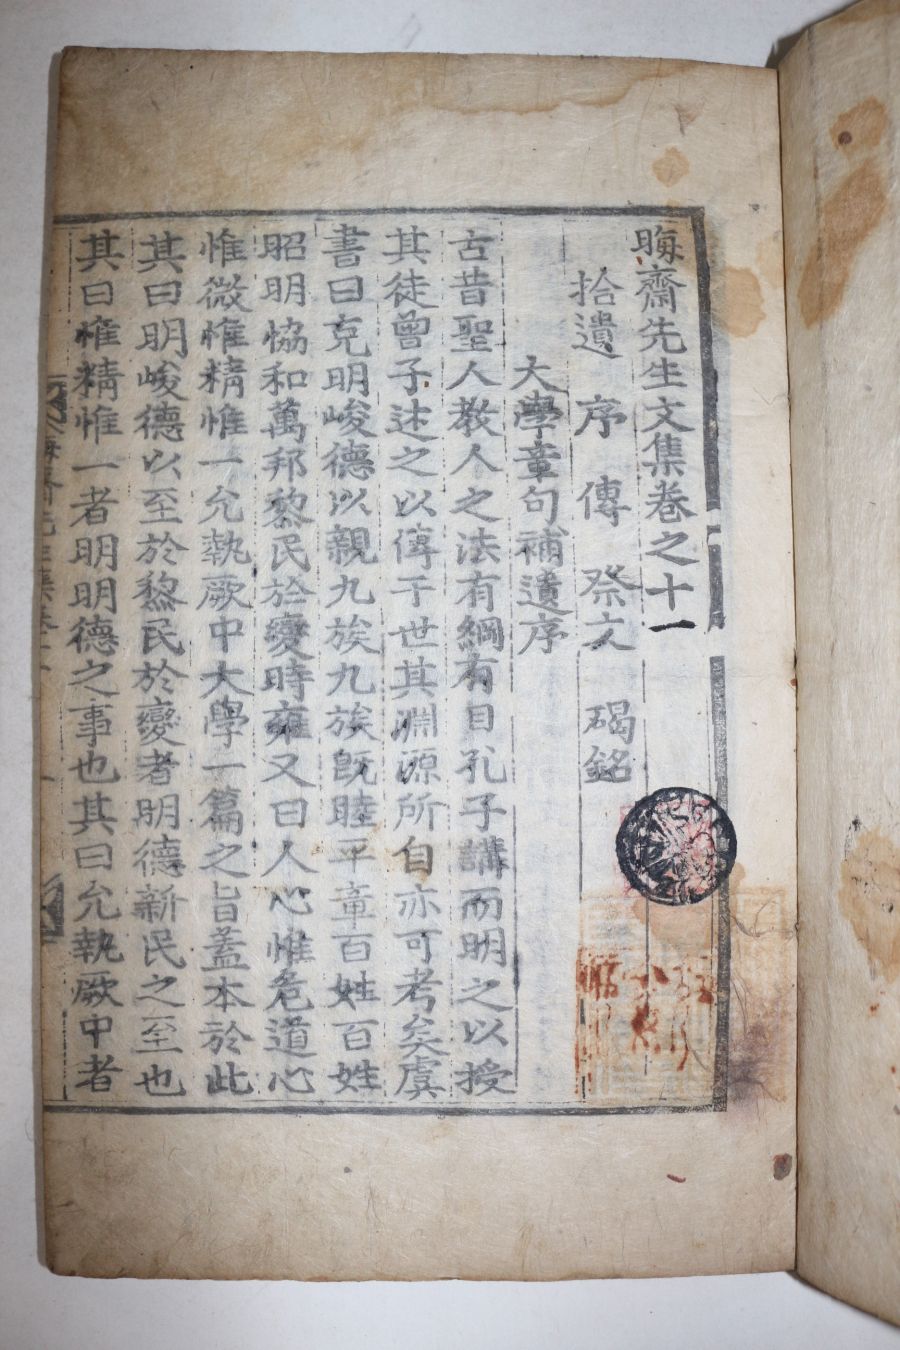 晦齋先生文集卷之十一
拾遺 序 傳 祭文 碣銘
大學章句補遺序
古昔聖人教人之法有綱有目孔子講而明之以授
其徒曾子述之以傳于世其淵源所自亦可考矣虞
書曰克明峻德以親九族九族旣睦平章百姓百姓
昭明恊和萬邦黎民於變時雍又曰人心惟危道心
惟微惟精惟一允執厥中大學一篇之旨蓋本於此
其曰明峻德以至於黎民於變者明德新民之至也
其曰惟精惟一者明明德之事也其曰允執厥中者